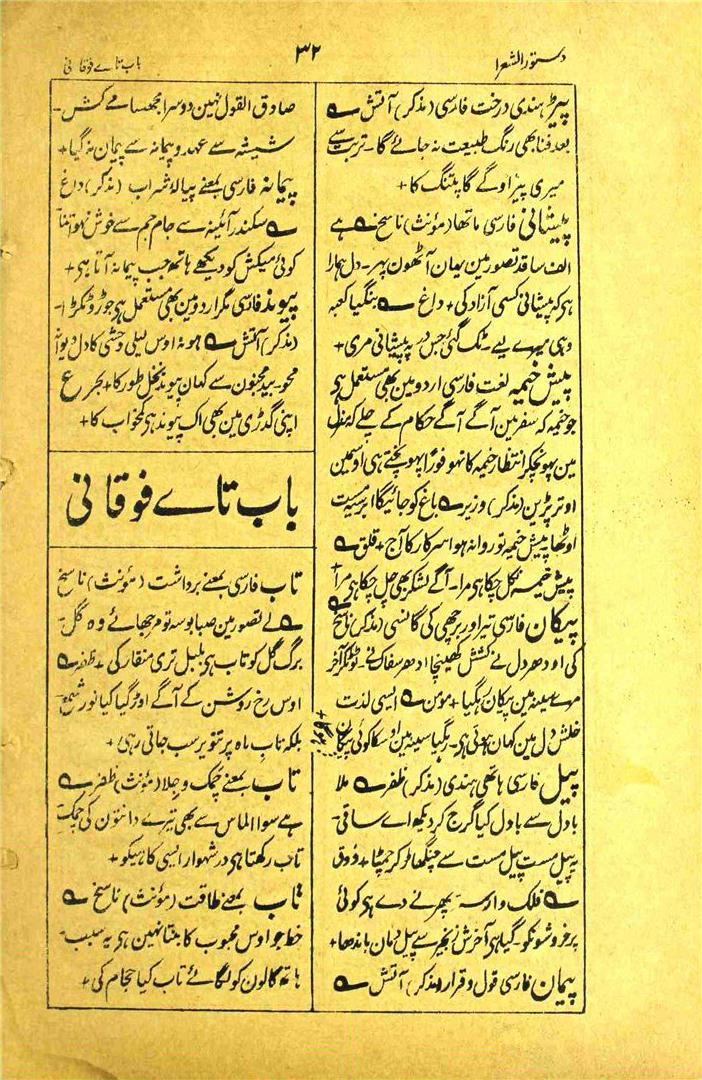 دستور الشعرا
۳۲
باب تاے فوقانی
پیڑ ہندی درخت فارسی (مذکر) آتش ؎
بعد فنا بھی رنگ طبیعت نہ جائے گا۔ تربت سے
میری پیڑ اوگے گا پتنگ کا +
پیشانی فارسی ماتھا (مؤنث) ناسخ ؎ ہے
الف سا قد تصور مین یہان آٹھون پہر۔ دل ہمارا
ہی کہ پیشانی کسی آزاد کی + داغ ؎ بنگیا کعبہ
وہی میرے لیے۔ ٹک گئی جس در پہ پیشانی مری +
پیش خیمہ لغت فارسی اردو مین بھی مستعمل ہی
جو خیمہ کہ سفر مین آگے آگے حکام کے چلے کہ منزل
مین پہونچکر انتظار خیمہ کا نہو فوراً پہونچتے ہی اوسمین
اوتر پڑین (مذکر) وزیر ؎ باغ کو جائیگا ابر سیہ مست
اوٹھا پیش خیمہ تو روانہ ہوا سرکار کا آج + قلق ؎
پیش خیمہ نکل چکا ہی مرا۔ آگے لشکر بھی چل چکا ہی مرا +
پیکان فارسی تیر اور برچھی کی گانسی (مذکر) ناسخ ؎
کی اودھر دل نے کشش کھینچا ادھر سفاک نے۔ ٹوٹکر آخر
مرے سینہ مین پیکان رہگیا + مومن ؎ ایسی لذت
خلش دل مین کہان ہوتی ہی۔ رہگیا سینہ مین اوسکا کوئی پیکان
پیل فارسی ہاتھی ہندی (مذکر) ظفر ؎ ملا
بادل سے بادل کیا گرج کر دیکھ اے ساقی۔
پہ پیل مست پیل مست سے چنگھاڑ کر جھپٹا + ذوق
؎ فلک وارستہ پھرنے دے ہی کوئی
پر خروشونکو۔ گیا ہی آخرش زنجیر سے پیل دمان باندھا +
پیمان فارسی قول و قرار (مذکر) آتش ؎
صادق القول نہین دوسرا مجھسا میکش۔
شیشہ سے عہد و پیمانہ سے پیمان نہ گیا +
پیمانہ فارسی بمعنے پیالۂ شراب (مذکر) داغ
؎ سکندر آئینہ سے جام جم سے خوش نہو اتنا
کوئی میکش کو دیکھے ہاتھ جب پیمانہ آتا ہی +
پیوند فارسی مگر اردو مین بھی مستعمل ہی جوڑ و ٹکڑا۔
(مذکر) آتش ؎ ہو نہ اوس لیلی وحشی کا دل دیوانہ
محو۔ بید مجنون سے کہان پیوند نخل طور کا + بحر ع
اپنی گدڑی مین بھی اک پیوند ہی کمخواب کا +
باب تاے فوقانی
تاب فارسی بمعنے برداشت (مؤنث) ناسخ
؎ لے تصور مین صبا بوسہ تو مرجھائے وہ گل۔
برگ گل کو تاب ہی بلبل تری منقار کی + ظفر ؎
اوس رخ روشن کے آگے اوڑ گیا کیا نور شمع۔
بلکہ تاب ماہ پر تنویر سب جاتی رہی +
تاب بمعنے چمک و جلا (مؤنث) ظفر ؎
ہے سوا الماس سے بھی تیرے دانتون کی چمک
تاب رکھتا ہی در شہوار ایسی کا ہیکو +
تاب بمعنے طاقت (مؤنث) ناسخ ؎
خط جو اوس محبوب کا بنتا نہین ہی یہ سبب۔
ہاتھ گالون کو لگائے تاب کیا حجام کی +